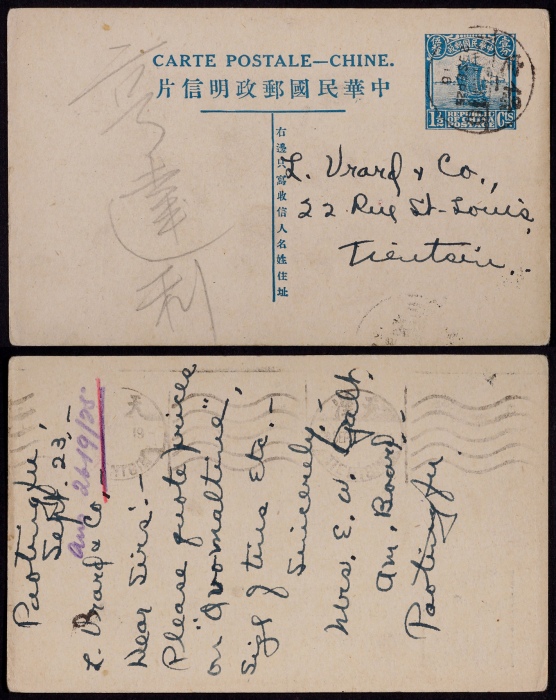 CARTE POSTALE—CHINE.
片信明政郵國民華中
1½ REPUBLIC OF CHINA POSTAGE Cts
右邊只寫收信人名姓住址
亨達利
L. Vrard & Co.,
22 Rue St-Louis,
Tientsin.
天
Paotingfu,
Sept. 23,—
Ans 26/9/25
L. Vrard & Co,—
Dear Sirs:—
Please quote prices
on "Ovomaltine",
Size of tins Etc.—
Sincerely,
Mrs. E. W. Galt,
Am. Board
Paotingfu